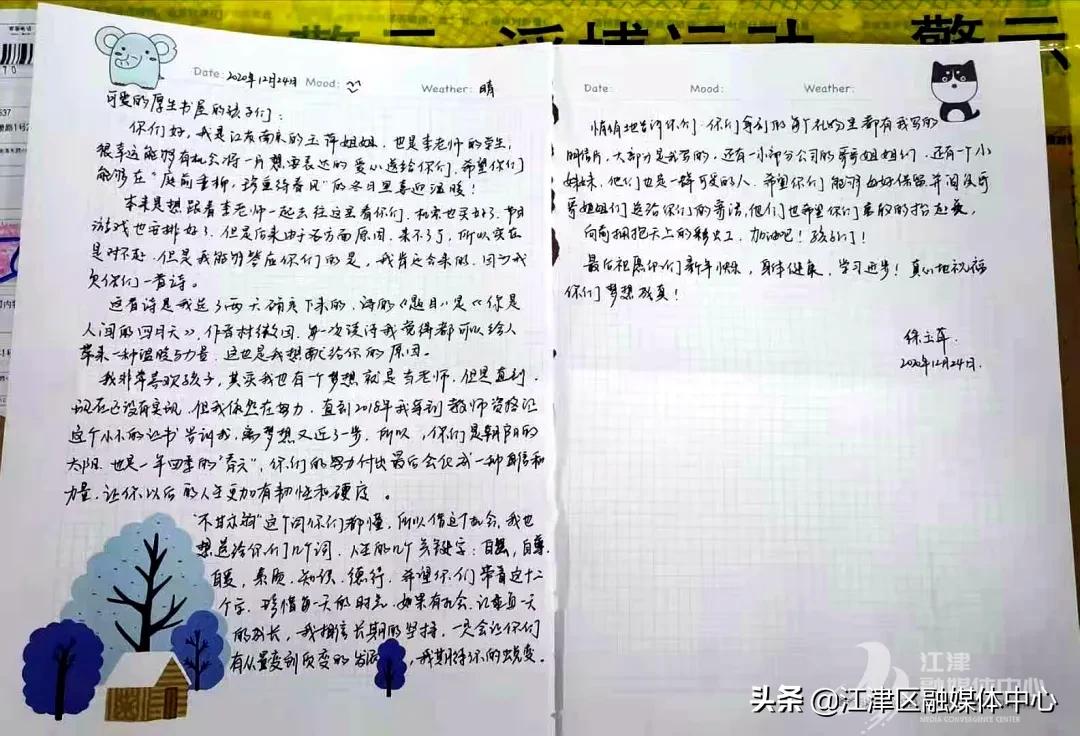 Date: 2020年12月24日 Mood: Weather: 晴
可爱的厚生书屋的孩子们：
你们好，我是江友南京的玉萍姐姐，也是李老师的学生，
很幸运能够有机会将一片想要表达的爱心送给你们，希望你们
能够在“庭前垂柳，珍重待春风”的冬日里喜迎温暖！
本来是想跟着李老师一起去往这里看你们，机票也买好了，节目
游戏也安排好了，但是后来由于各方面原因，来不了了，所以实在
是对不起，但是我能够答应你们的是，我肯定会来的，因为我
欠你们一首诗。
这首诗是我选了两天确定下来的，诗的《题目》是《你是
人间的四月天》，作者林徽因，每一次读诗我觉得都可以给人
带来一种温暖与力量，这也是我想献给你的原因。
我非常喜欢孩子，其实我也有一个梦想就是当老师，但是直到
现在还没有实现，但我依然在努力，直到2018年我拿到教师资格证
这个小小的证书告诉我，离梦想又近了一步，所以，你们是朝阳的
太阳，也是一年四季的“春天”，你们的努力付出最后会化成一种自信和
力量，让你以后的人生更加有韧性和硬度。
这个词你们都懂，所以借这个机会，我也
想送给你们几个词，人生的几个关键字：自强，自尊，
自爱，素质，知识，德行，希望你们带着这十二
个字，珍惜每一天的时光，如果有机会，记录每一天
的成长，我相信长期的坚持，一定会让你们
有从量变到质变的发展，我期待你的蜕变。
Date: Mood: Weather:
悄悄地告诉你们：你们拿到的每个礼物里都有我写的
明信片，大部分是我写的，还有一小部分公司的哥哥姐姐们，还有一个小
妹妹，他们也是一群可爱的人，希望你们能够好好保留并阅读哥
哥姐姐们送给你们的寄语，他们也希望你们勇敢的抬起头，
向前拥抱天上的彩虹，加油吧！孩子们！
最后祝愿你们新年快乐，身体健康，学习进步！真心地祝福
你们梦想成真！
徐玉萍
2020年12月24日.
江津
融媒体中心
MEDIA CONVERGENCE CENTER
头条 @江津区融媒体中心